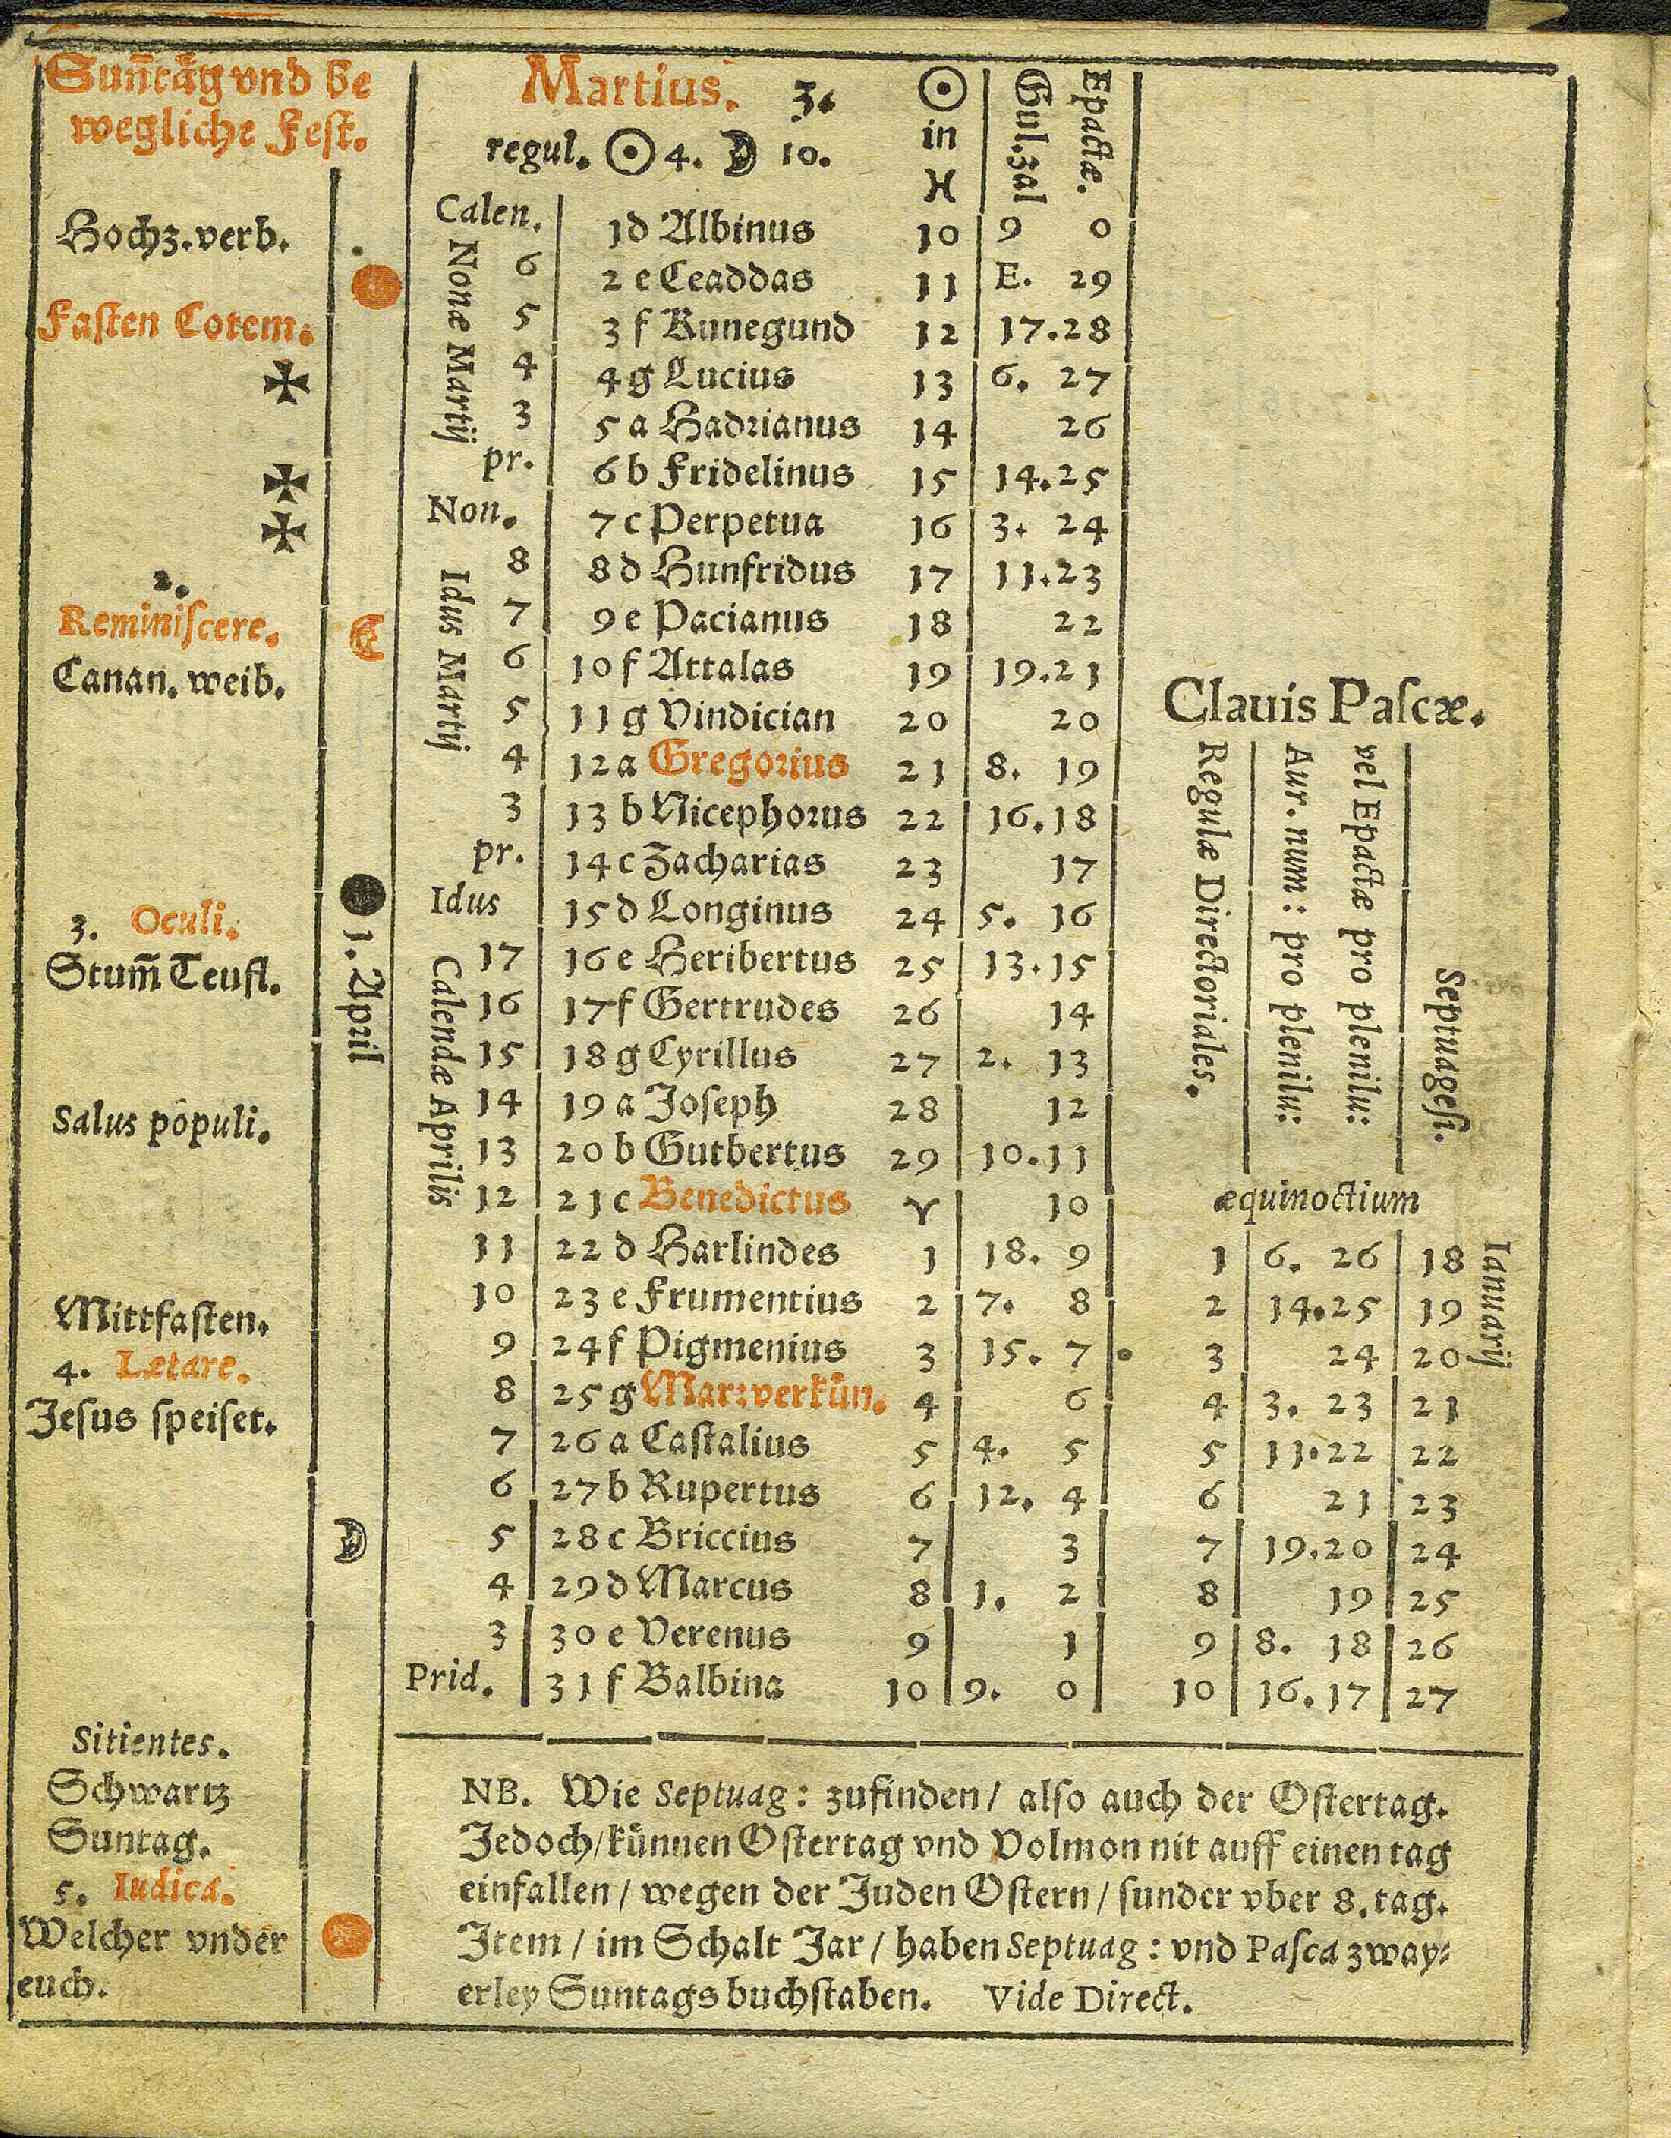 Sun̄tåg vnd be
wegliche Fest.
Hochz. verb.
Fasten Cotem.
✠
✠
✠
2.
Reminiscere.
Canan. weib.
3. Oculi.
Stum̄ Teufl.
Salus populi.
Mittfasten.
4. Lætare.
Jesus speiset.
Sitientes.
Schwartz
Suntag.
5. Iudica.
Welcher vnder
euch.
1. April
Martius. 3.
regul. ☉ 4. ☽ 10.
☉ in ♓
Gul. zal
Epactæ.
Nonæ Martij
Idus Martij
Calendæ Aprilis
Calen. 1 d Albinus 10 9 0
6 2 e Ceaddas 11 E. 29
5 3 f Kunegund 12 17. 28
4 4 g Lucius 13 6. 27
3 5 a Hadrianus 14 26
pr. 6 b Fridelinus 15 14. 25
Non. 7 c Perpetua 16 3. 24
8 8 d Hunfridus 17 11. 23
7 9 e Pacianus 18 22
6 10 f Attalas 19 19. 21
5 11 g Vindician 20 20
4 12 a Gregorius 21 8. 19
3 13 b Nicephorus 22 16. 18
pr. 14 c Zacharias 23 17
Idus 15 d Longinus 24 5. 16
17 16 e Heribertus 25 13. 15
16 17 f Gertrudes 26 14
15 18 g Cyrillus 27 2. 13
14 19 a Joseph 28 12
13 20 b Gutbertus 29 10. 11
12 21 c Benedictus ♈ 10
11 22 d Harlindes 1 18. 9
10 23 e Frumentius 2 7. 8
9 24 f Pigmenius 3 15. 7
8 25 g Mar: verkün. 4 6
7 26 a Castalius 5 4. 5
6 27 b Rupertus 6 12. 4
5 28 c Briccius 7 3
4 29 d Marcus 8 1. 2
3 30 e Verenus 9 1
Prid. 31 f Balbina 10 9. 0
Clauis Pascæ.
Regulæ Directoriales.
Aur. num: pro plenilu:
vel Epactæ pro plenilu:
Septuagesi.
æquinoctium
Ianuarij
1 6. 26 18
2 14. 25 19
3 24 20
4 3. 23 21
5 11. 22 22
6 21 23
7 19. 20 24
8 19 25
9 8. 18 26
10 16. 17 27
NB. Wie Septuag: zufinden / also auch der Ostertag.
Jedoch / künnen Ostertag vnd Volmon nit auff einen tag
einfallen / wegen der Juden Ostern / sunder vber 8. tag.
Item / im Schalt Jar / haben Septuag: vnd Pasca zway-
erley Suntags buchstaben. Vide Direct.